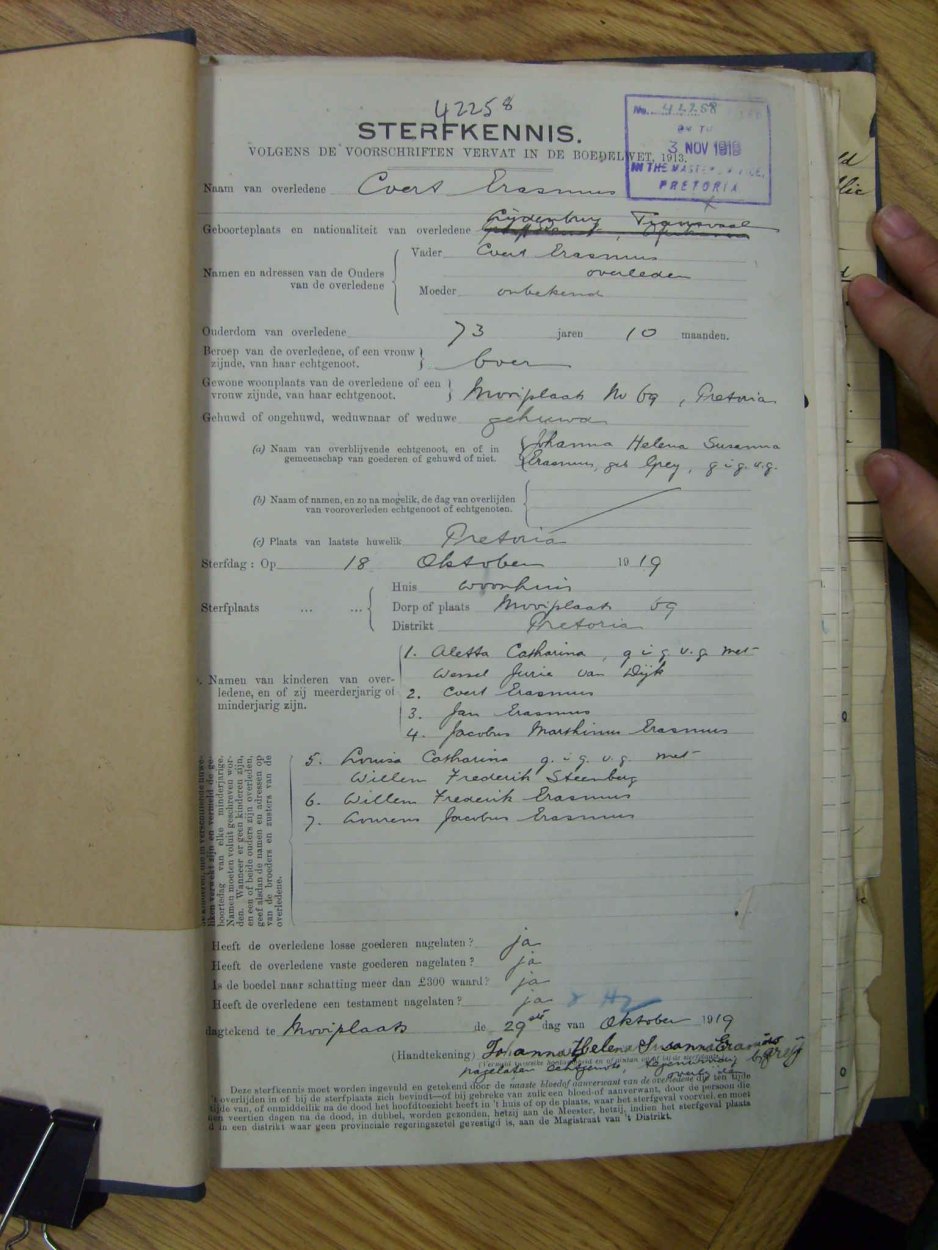 42258
STERFKENNIS.
VOLGENS DE VOORSCHRIFTEN VERVAT IN DE BOEDELWET, 1913.
No. 42258
3 NOV 1919
IN THE MASTER'S OFFICE,
PRETORIA
Naam van overledene Evert Erasmus
Geboorteplaats en nationaliteit van overledene Lydenburg Transvaal
Namen en adressen van de Ouders van de overledene
Vader Evert Erasmus
overleden
Moeder onbekend
Ouderdom van overledene 73 jaren 10 maanden.
Beroep van de overledene, of een vrouw
zijnde, van haar echtgenoot. boer
Gewone woonplaats van de overledene of een
vrouw zijnde, van haar echtgenoot. Mooiplaats No 69, Pretoria
Gehuwd of ongehuwd, weduwnaar of weduwe gehuwd
(a) Naam van overblijvende echtgenoot, en of in
gemeenschap van goederen of gehuwd of niet.
Johanna Helena Susanna
Erasmus, geb Grey, g.i.g.v.g.
(b) Naam of namen, en zo na mogelik, de dag van overlijden
van vooroverleden echtgenoot of echtgenoten.
(c) Plaats van laatste huwelik Pretoria
Sterfdag: Op 18 Oktober 1919
Sterfplaats ... ...
Huis woonhuis
Dorp of plaats Mooiplaats 69
Distrikt Pretoria
Namen van kinderen van over-
ledene, en of zij meerderjarig of
minderjarig zijn.
1. Aletta Catharina, g.i.g.v.g. met
Wessel Jurie van Dijk
2. Evert Erasmus
3. Jan Erasmus
4. Jacobus Marthinus Erasmus
boortedag van elke minderjarige.
Namen moeten voluit geschreven wor-
den. Wanneer er geen kinderen zijn,
en een of beide ouders zijn overleden,
geef alsdan de namen en adressen op
van de broeders en zusters van de
overledene.
5. Louisa Catharina g.i.g.v.g. met
Willem Frederik Steenberg
6. Willem Frederik Erasmus
7. Lourens Jacobus Erasmus
Heeft de overledene losse goederen nagelaten? ja
Heeft de overledene vaste goederen nagelaten? ja
Is de boedel naar schatting meer dan £300 waard? ja
Heeft de overledene een testament nagelaten? ja
dagtekend te Mooiplaats de 29ste dag van Oktober 1919
(Handtekening) Johanna Helena Susanna Erasmus
nagelaten echtgenote, tegenwoordig bij
overlijden
Deze sterfkennis moet worden ingevuld en getekend door de naaste bloedof aanverwant van de overledene die ten tijde
't overlijden in of bij de sterfplaats zich bevindt—of bij gebreke van zulk een bloed-of aanverwant, door de persoon die
tijde van, of onmiddellik na de dood het hoofdtoezicht heeft in 't huis of op de plaats, waar het sterfgeval voorviel, en moet
den veertien dagen na de dood, in dubbel, worden gezonden, hetzij aan de Meester, hetzij, indien het sterfgeval plaats
d in een distrikt waar geen provinciale regeringszetel gevestigd is, aan de Magistraat van 't Distrikt.